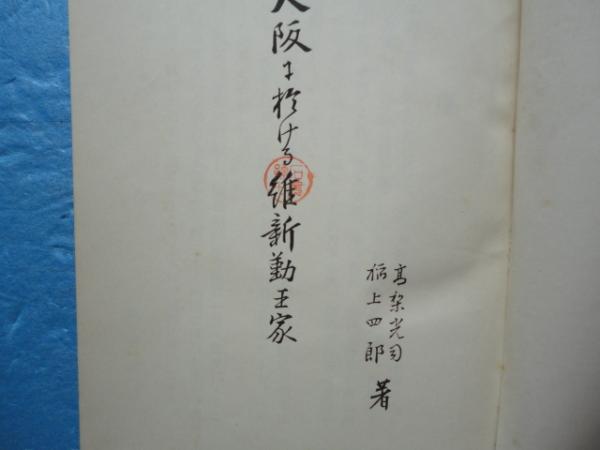 大阪に於ける維新勤王家
高梨光司
稲上四郎
著